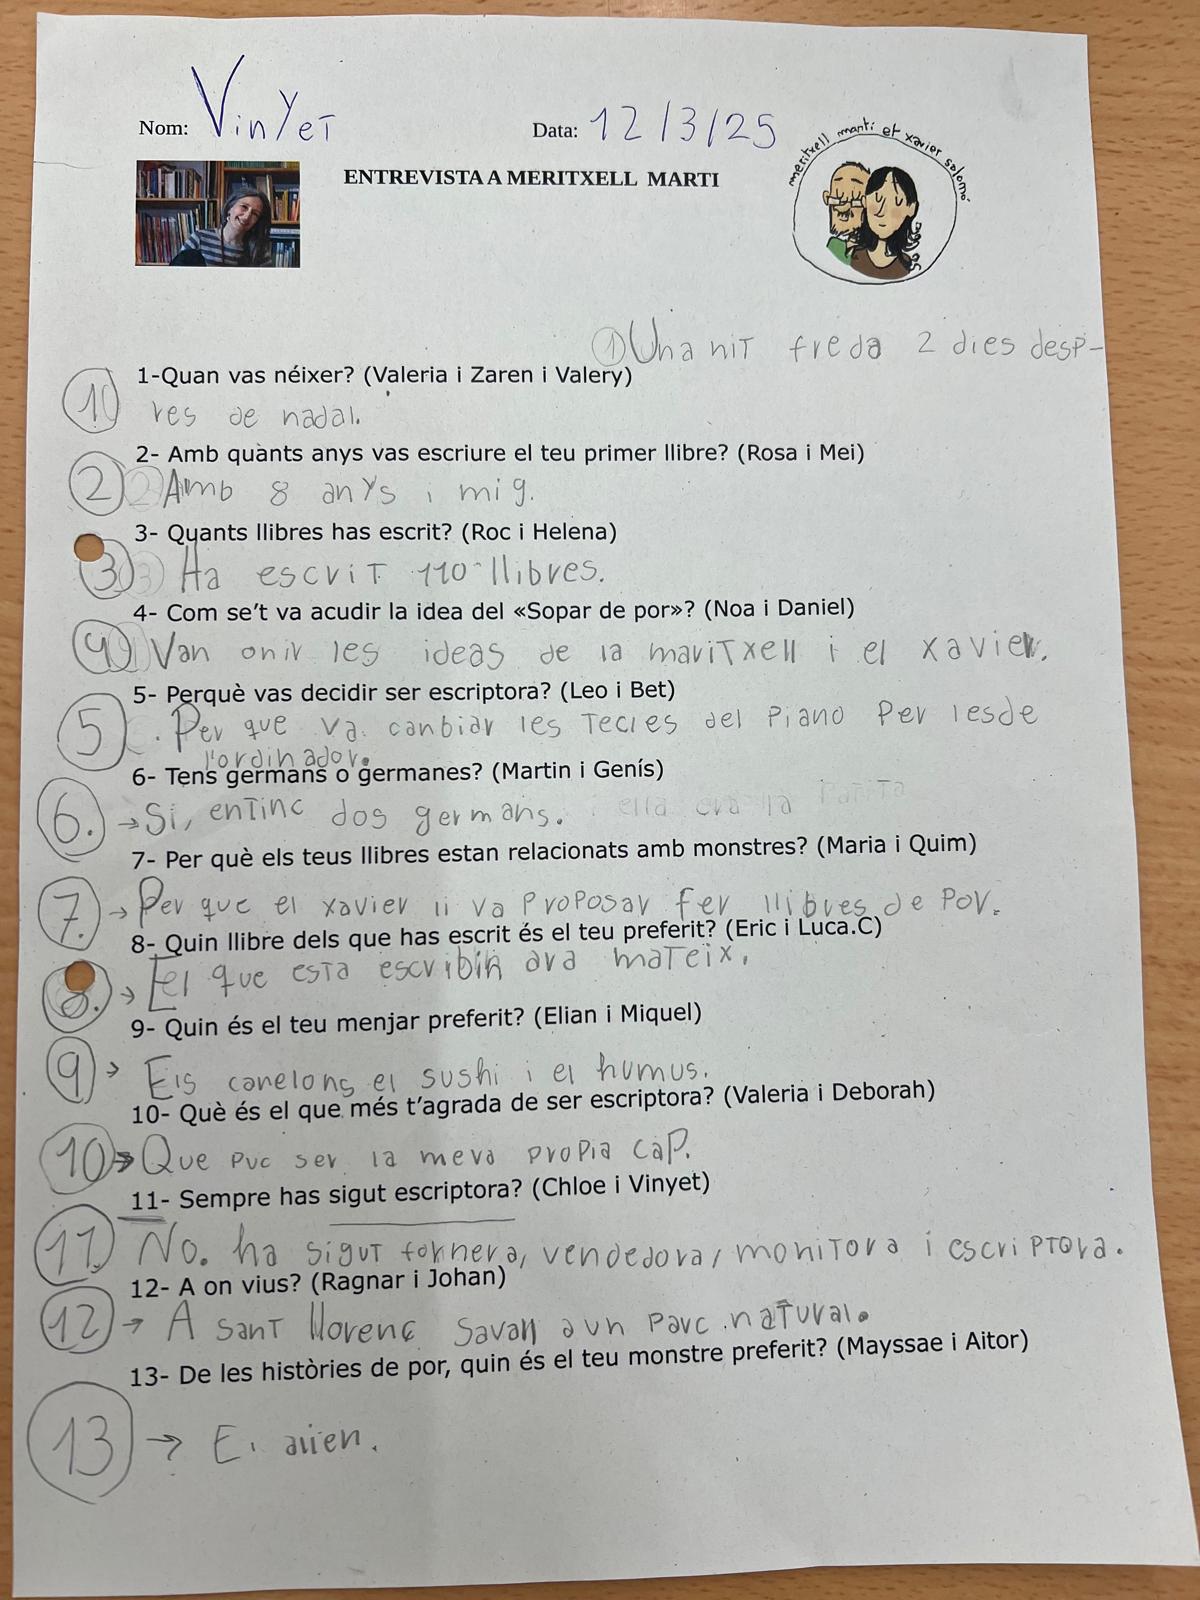 Nom: Vinyet Data: 12/3/25
meritxell martí et xavier salomó
ENTREVISTA A MERITXELL MARTI
① Una nit freda 2 dies desp-
1-Quan vas néixer? (Valeria i Zaren i Valery)
res de nadal.
2- Amb quants anys vas escriure el teu primer llibre? (Rosa i Mei)
2 Amb 8 anys i mig.
3- Quants llibres has escrit? (Roc i Helena)
3 Ha escrit 110 llibres.
4- Com se't va acudir la idea del «Sopar de por»? (Noa i Daniel)
4 Van onir les ideas de la maritxell i el xavier.
5- Perquè vas decidir ser escriptora? (Leo i Bet)
5 Per que va canbiar les tecles del piano per lesde
l'ordinador.
6- Tens germans o germanes? (Martin i Genís)
6. → Si, entinc dos germans. i ella era la
7- Per què els teus llibres estan relacionats amb monstres? (Maria i Quim)
7. → Per que el xavier li va proposar fer llibres de por.
8- Quin llibre dels que has escrit és el teu preferit? (Eric i Luca.C)
8. → El que esta escribin ara mateix.
9- Quin és el teu menjar preferit? (Elian i Miquel)
9 → Els canelons el sushi i el humus.
10- Què és el que més t'agrada de ser escriptora? (Valeria i Deborah)
10 → Que puc ser la meva propia cap.
11- Sempre has sigut escriptora? (Chloe i Vinyet)
11. No. ha sigut fornera, vendedora, monitora i escriptora.
12- A on vius? (Ragnar i Johan)
12 → A sant llorenç savall a un parc natural.
13- De les històries de por, quin és el teu monstre preferit? (Mayssae i Aitor)
13 → El alien.